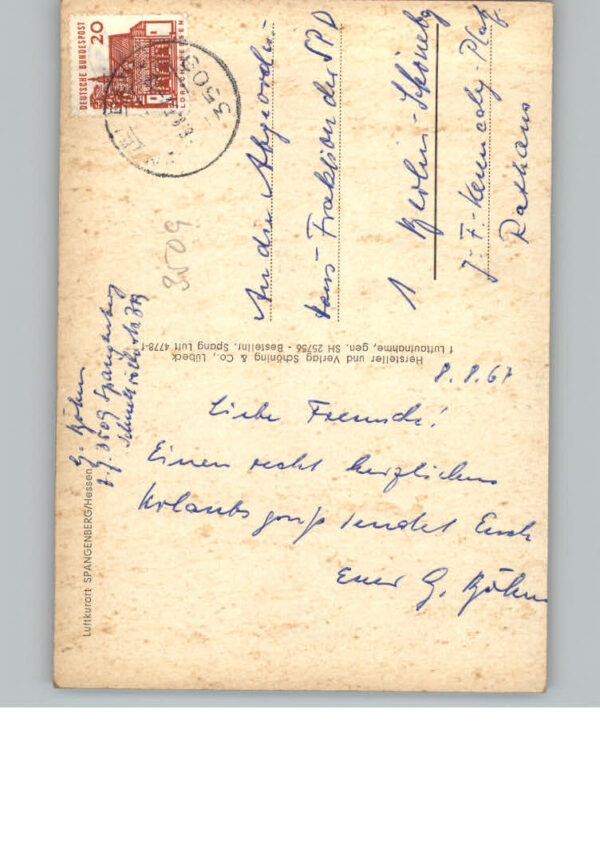 DEUTSCHE BUNDESPOST
20
LORSCH HESSEN
3503
3509
An die Abgeordne-
ten-Fraktion der SPD
1 Berlin-Schöneberg
J.-F.-Kennedy-Platz
Rathaus
Hersteller und Verlag Schöning & Co., Lübeck
f Luftaufnahme, gen. SH 25756 - Bestellnr. Spang Luft 4778-f
8.8.67
Liebe Freunde!
Einen recht herzlichen
Urlaubsgruß sendet Euch
Euer G. Böhm
G. Böhm
z. Z. 3509 Spangenberg
Luftkurort SPANGENBERG/Hessen